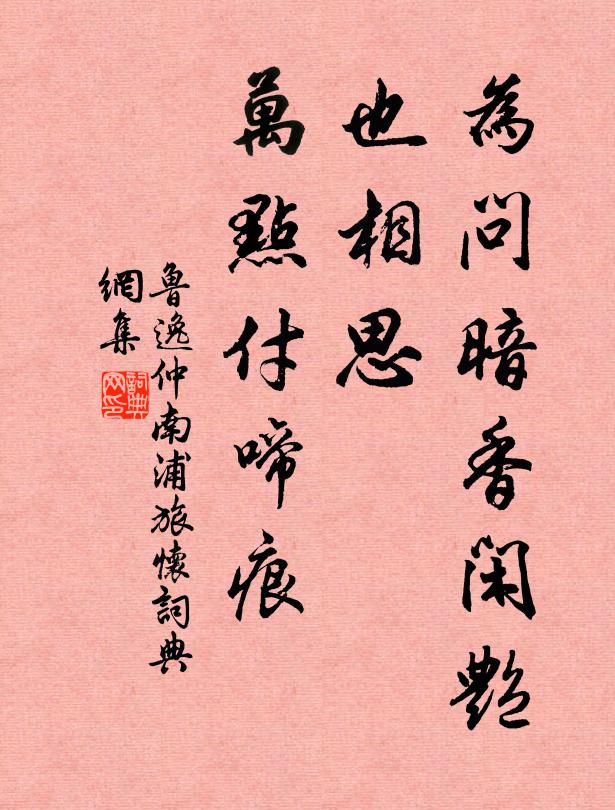 為問暗香閑艷
也相思
萬點付啼痕
魯逸仲南浦旅懷詞典
網集
詞典
网印